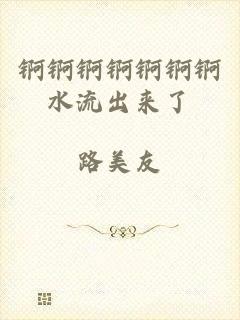 锕锕锕锕锕锕锕
水流出来了
路美友